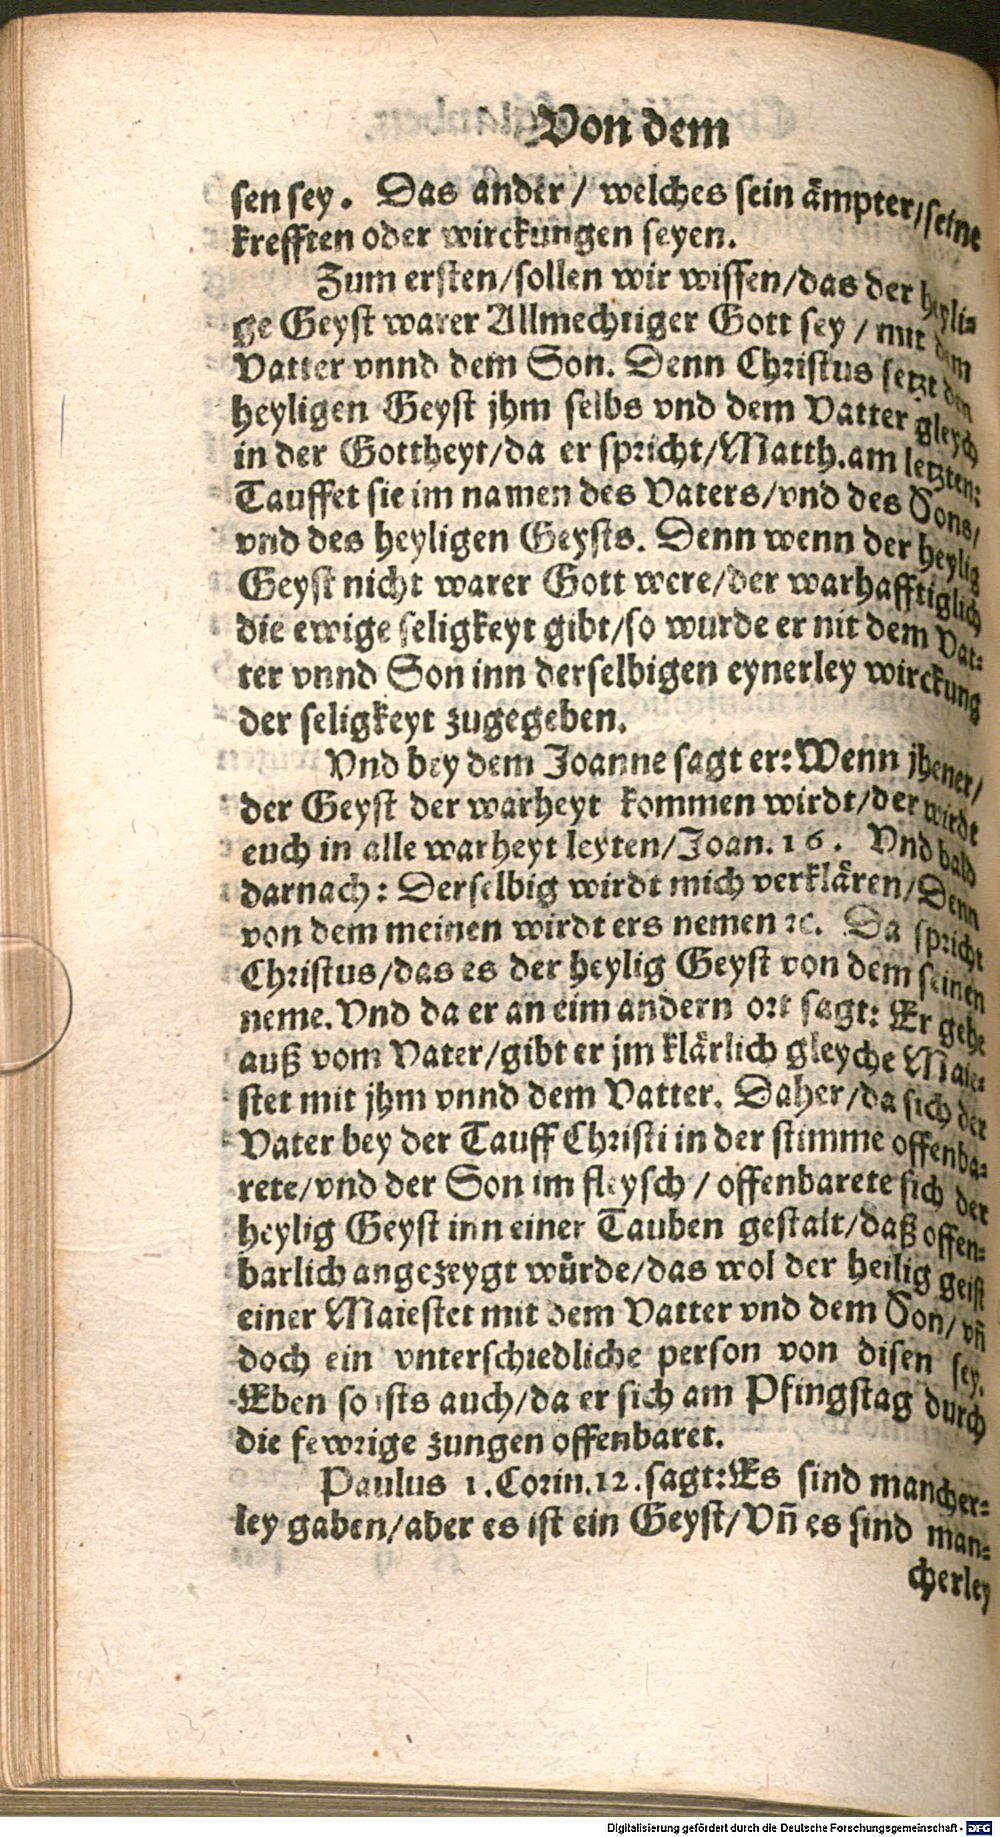 Von dem
sen sey. Das ander / welches sein ämpter/seine
krefften oder wirckungen seyen.
Zum ersten/sollen wir wissen/das der heyli⸗
ge Geyst warer Allmechtiger Gott sey / mit dem
Vatter vnnd dem Son. Denn Christus setzt den
heyligen Geyst jhm selbs vnd dem Vatter gleych
in der Gottheyt/da er spricht/Matth.am letzten:
Tauffet sie im namen des Vaters/vnd des Sons/
vnd des heyligen Geysts. Denn wenn der heylig
Geyst nicht warer Gott were/der warhafftiglich
die ewige seligkeyt gibt/so wurde er nit dem Vat⸗
ter vnnd Son inn derselbigen eynerley wirckung
der seligkeyt zugegeben.
Vnd bey dem Joanne sagt er: Wenn jhener/
der Geyst der warheyt kommen wirdt/der wirdt
euch in alle warheyt leyten/Joan. 16. Vnd bald
darnach: Derselbig wirdt mich verklären/Denn
von dem meinen wirdt ers nemen ꝛc. Da spricht
Christus/das es der heylig Geyst von dem seinen
neme. Vnd da er an eim andern ort sagt: Er gehe
auß vom Vater/gibt er jm klärlich gleyche Maie⸗
stet mit jhm vnnd dem Vatter. Daher/da sich der
Vater bey der Tauff Christi in der stimme offenba⸗
rete/vnd der Son im fleysch / offenbarete sich der
heylig Geyst inn einer Tauben gestalt/daß offen⸗
barlich angezeygt würde/das wol der heilig geist
einer Maiestet mit dem Vatter vnd dem Son/ vñ
doch ein vnterschiedliche person von disen sey.
Eben so ists auch/da er sich am Pfingstag durch
die fewrige zungen offenbaret.
Paulus 1. Corin. 12. sagt: Es sind mancher⸗
ley gaben/aber es ist ein Geyst/Vñ es sind man⸗
cherley
Digitalisierung gefördert durch die Deutsche Forschungsgemeinschaft - DFG